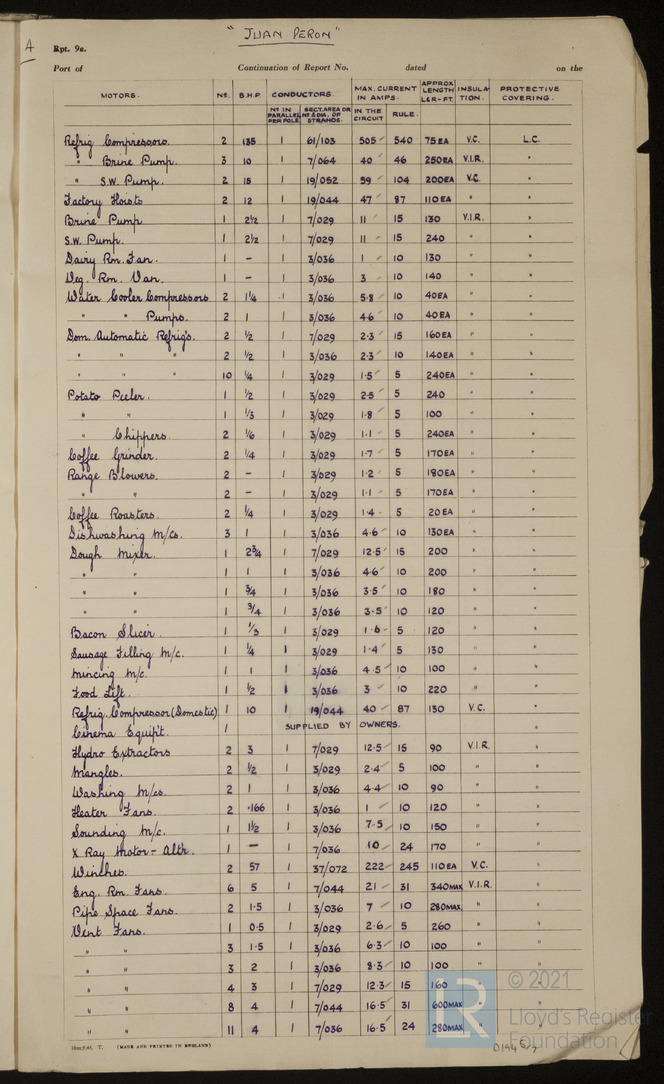 "JUAN PERON"
A
Rpt. 9a.
Port of Continuation of Report No. dated on the
MOTORS. No. B.H.P. CONDUCTORS. MAX. CURRENT IN AMPS. APPROX LENGTH L&R-FT. INSULATION. PROTECTIVE COVERING.
No IN PARALLEL PER POLE. SECT. AREA OR No & DIA. OF STRANDS. IN THE CIRCUIT RULE.
Refrig Compressors. 2 135 1 61/103 505 540 75 EA V.C. L.C.
" Brine Pump. 3 10 1 7/064 40 46 250 EA V.I.R. "
" S.W. Pump. 2 15 1 19/052 59 104 200 EA V.C. "
Factory Hoists 2 12 1 19/044 47 87 110 EA " "
Brine Pump 1 2½ 1 7/029 11 15 130 V.I.R. "
S.W. Pump. 1 2½ 1 7/029 11 15 240 " "
Dairy Rm. Fan. 1 - 1 3/036 1 10 130 " "
Veg. Rm. Van. 1 - 1 3/036 3 10 140 " "
Water Cooler Compressors 2 1¼ 1 3/036 5·8 10 40 EA " "
" " Pumps. 2 1 1 3/036 4·6 10 40 EA " "
Dom. Automatic Refrigs. 2 ½ 1 7/029 2·3 15 160 EA " "
" " " 2 ½ 1 3/036 2·3 10 140 EA " "
" " " 10 ¼ 1 3/029 1·5 5 240 EA " "
Potato Peeler. 1 ½ 1 3/029 2·5 5 240 " "
" " 1 ⅓ 1 3/029 1·8 5 100 " "
" Chippers. 2 1/6 1 3/029 1·1 5 240 EA " "
Coffee Grinder. 2 ¼ 1 3/029 1·7 5 170 EA " "
Range Blowers. 2 - 1 3/029 1·2 5 180 EA " "
" " 2 - 1 3/029 1·1 5 170 EA " "
Coffee Roasters. 2 ¼ 1 3/029 1·4 5 20 EA " "
Dishwashing M/cs. 3 1 1 3/036 4·6 10 130 EA " "
Dough Mixer. 1 2¾ 1 7/029 12·5 15 200 " "
" " 1 1 1 3/036 4·6 10 200 " "
" " 1 ¾ 1 3/036 3·5 10 180 " "
" " 1 3/4 1 3/036 3·5 10 120 " "
Bacon Slicer. 1 ⅓ 1 3/029 1·6 5 120 " "
Sausage Filling M/c. 1 ¼ 1 3/029 1·4 5 130 " "
Mincing M/c. 1 1 1 3/036 4·5 10 100 " "
Food Lift. 1 ½ 1 3/036 3 10 220 " "
Refrig. Compressor (Domestic) 1 10 1 19/044 40 87 130 V.C. "
Cinema Equip't. 1 SUPPLIED BY OWNERS. "
Hydro Extractors 2 3 1 7/029 12·5 15 90 V.I.R. "
Mangles. 2 ½ 1 3/029 2·4 5 100 " "
Washing M/cs. 2 1 1 3/036 4·4 10 90 " "
Heater Fans. 2 ·166 1 3/036 1 10 120 " "
Sounding M/c. 1 1½ 1 3/036 7·5 10 150 " "
X Ray Motor - Altr. 1 — 1 7/036 10 24 170 " "
Winches. 2 57 1 37/072 222 245 110 EA V.C. "
Eng. Rm. Fans. 6 5 1 7/044 21 31 340 MAX V.I.R. "
Pipe Space Fans. 2 1·5 1 3/036 7 10 280 MAX. " "
Vent Fans. 1 0·5 1 3/029 2·6 5 260 " "
" " 3 1·5 1 3/036 6·3 10 100 " "
" " 3 2 1 3/036 8·3 10 100 " "
" " 4 3 1 7/029 12·3 15 160 " "
" " 8 4 1 7/044 16·5 31 600 MAX " "
" " 11 4 1 7/036 16·5 24 280 MAX " "
(MADE AND PRINTED IN ENGLAND)
© 2021
LR
Lloyd's Register
Foundation